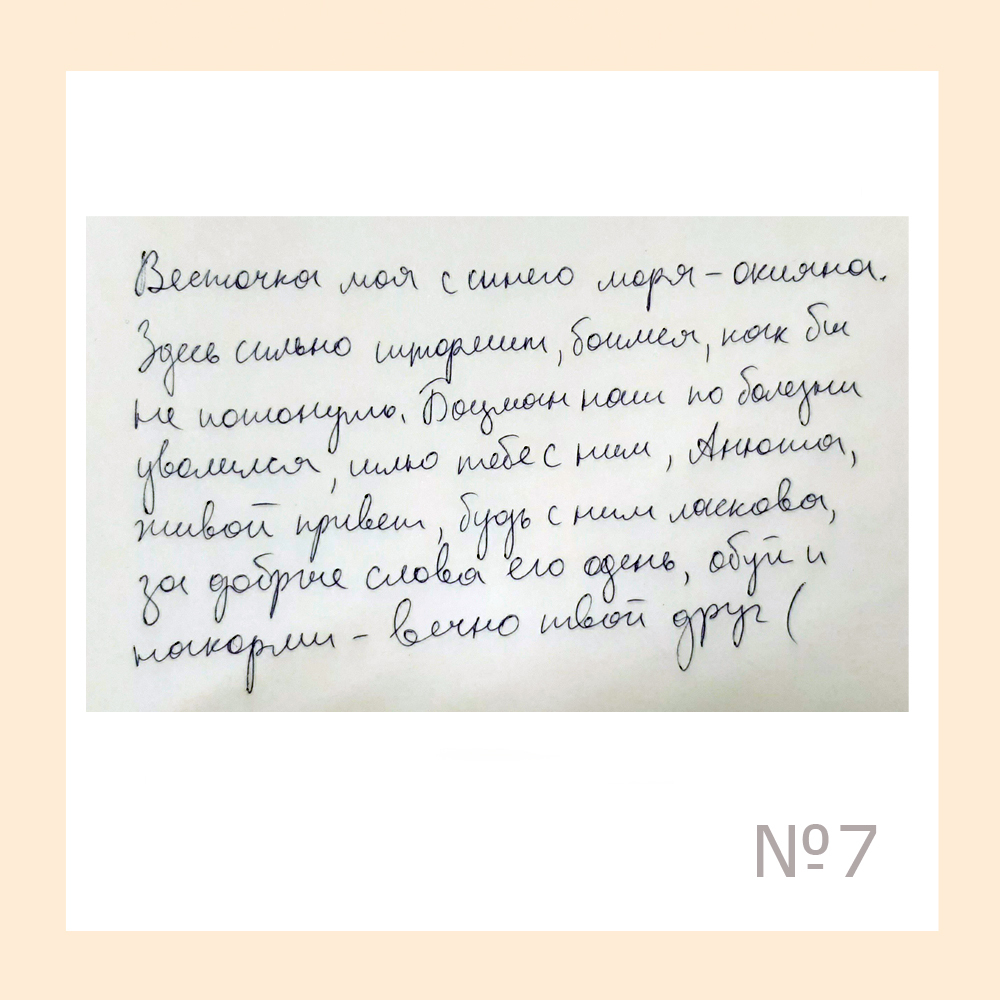 Весточка моя с синего моря-окияна.
Здесь сильно штормит, боимся, как бы
не потонуть. Боцман наш по болезни
уволился, шлю тебе с ним, Анюта,
живой привет, будь с ним ласкова,
за добрые слова его одень, обуй и
накорми - вечно твой друг (
№7